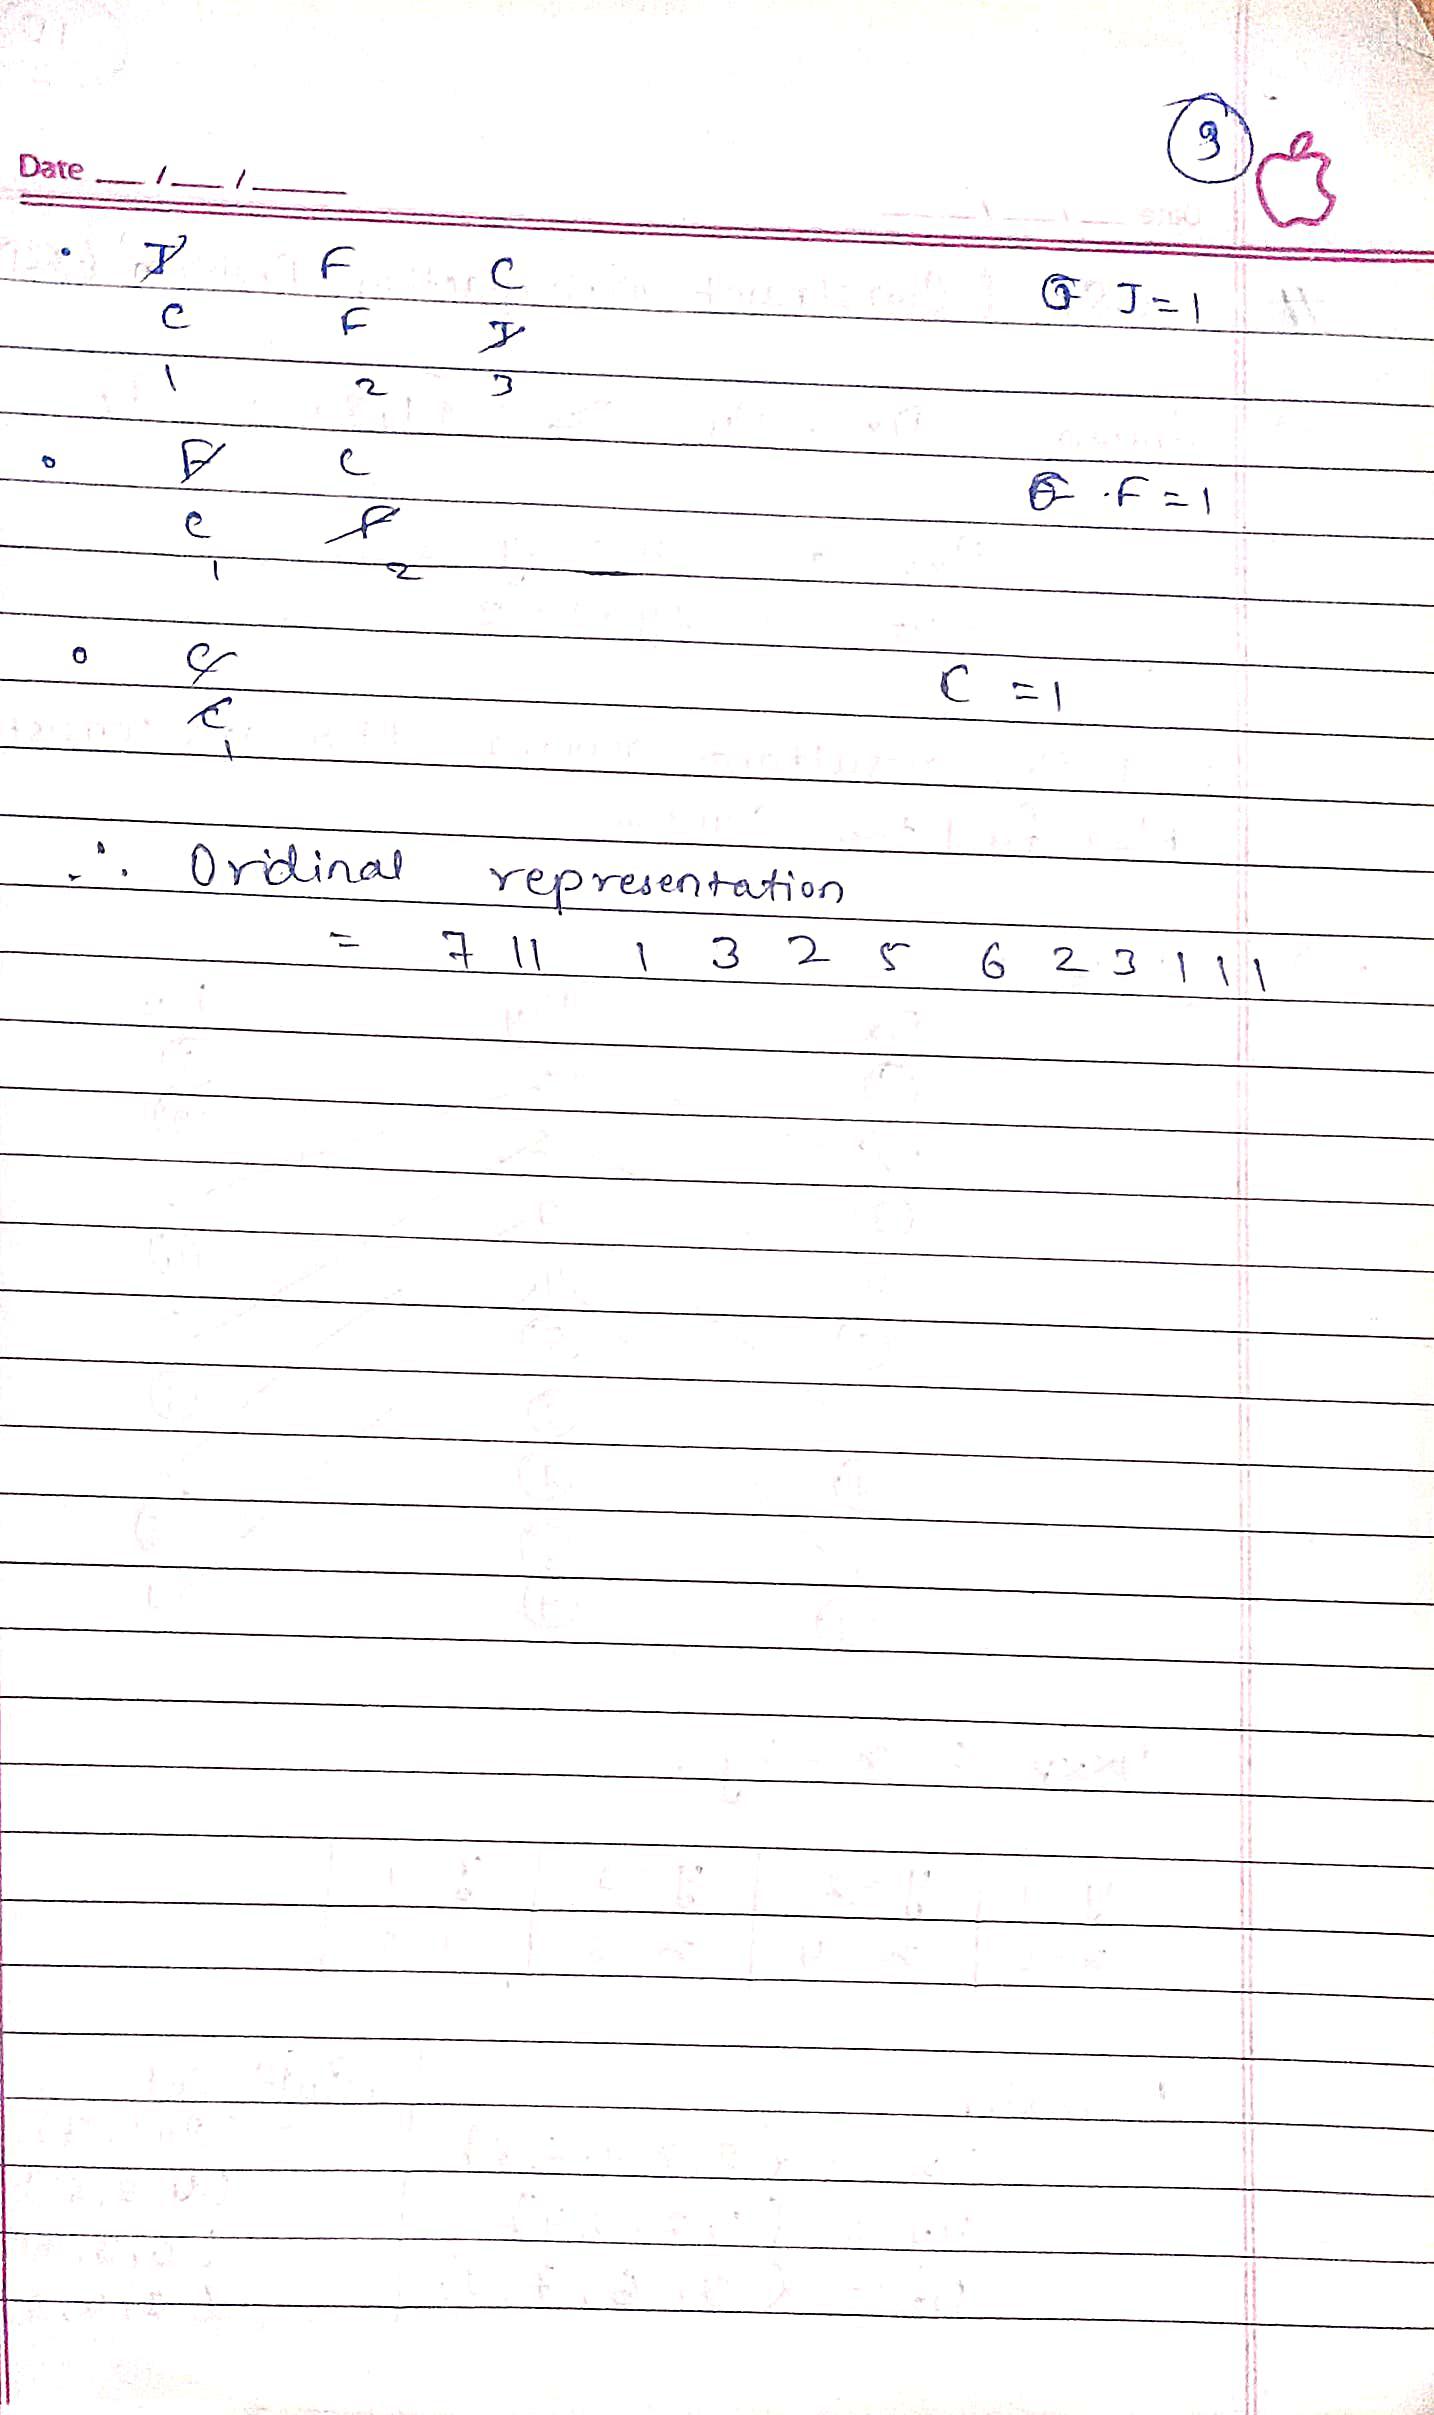 9
Date __/__/____
• J F C J=1
C F J
1 2 3
• F C F=1
C F
1 2
• C C =1
C
1
∴ Oridinal representation
= 7 11 1 3 2 5 6 2 3 1 1 1